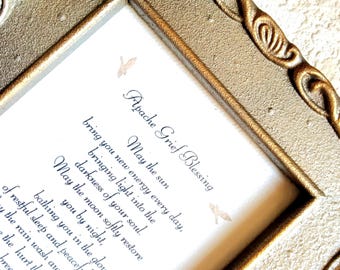 Apache Grief Blessing
May the sun
bring you new energy every day,
bringing light into the
darkness of your soul.
May the moon softly restore
you by night,
bathing you in the glow
of restful sleep and peaceful
the rain wash and
the hurt